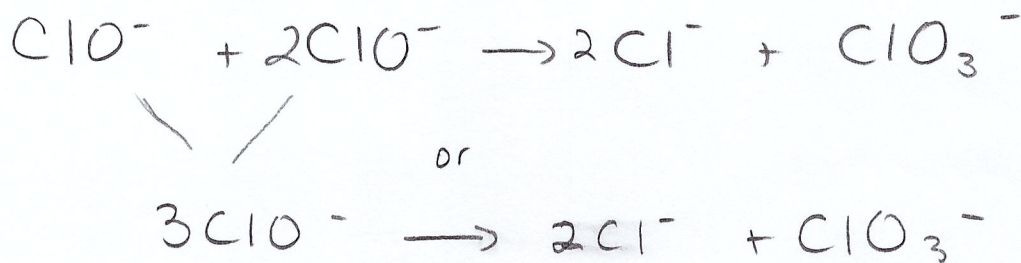 ClO⁻ + 2ClO⁻ → 2Cl⁻ + ClO₃⁻
or
3ClO⁻ → 2Cl⁻ + ClO₃⁻